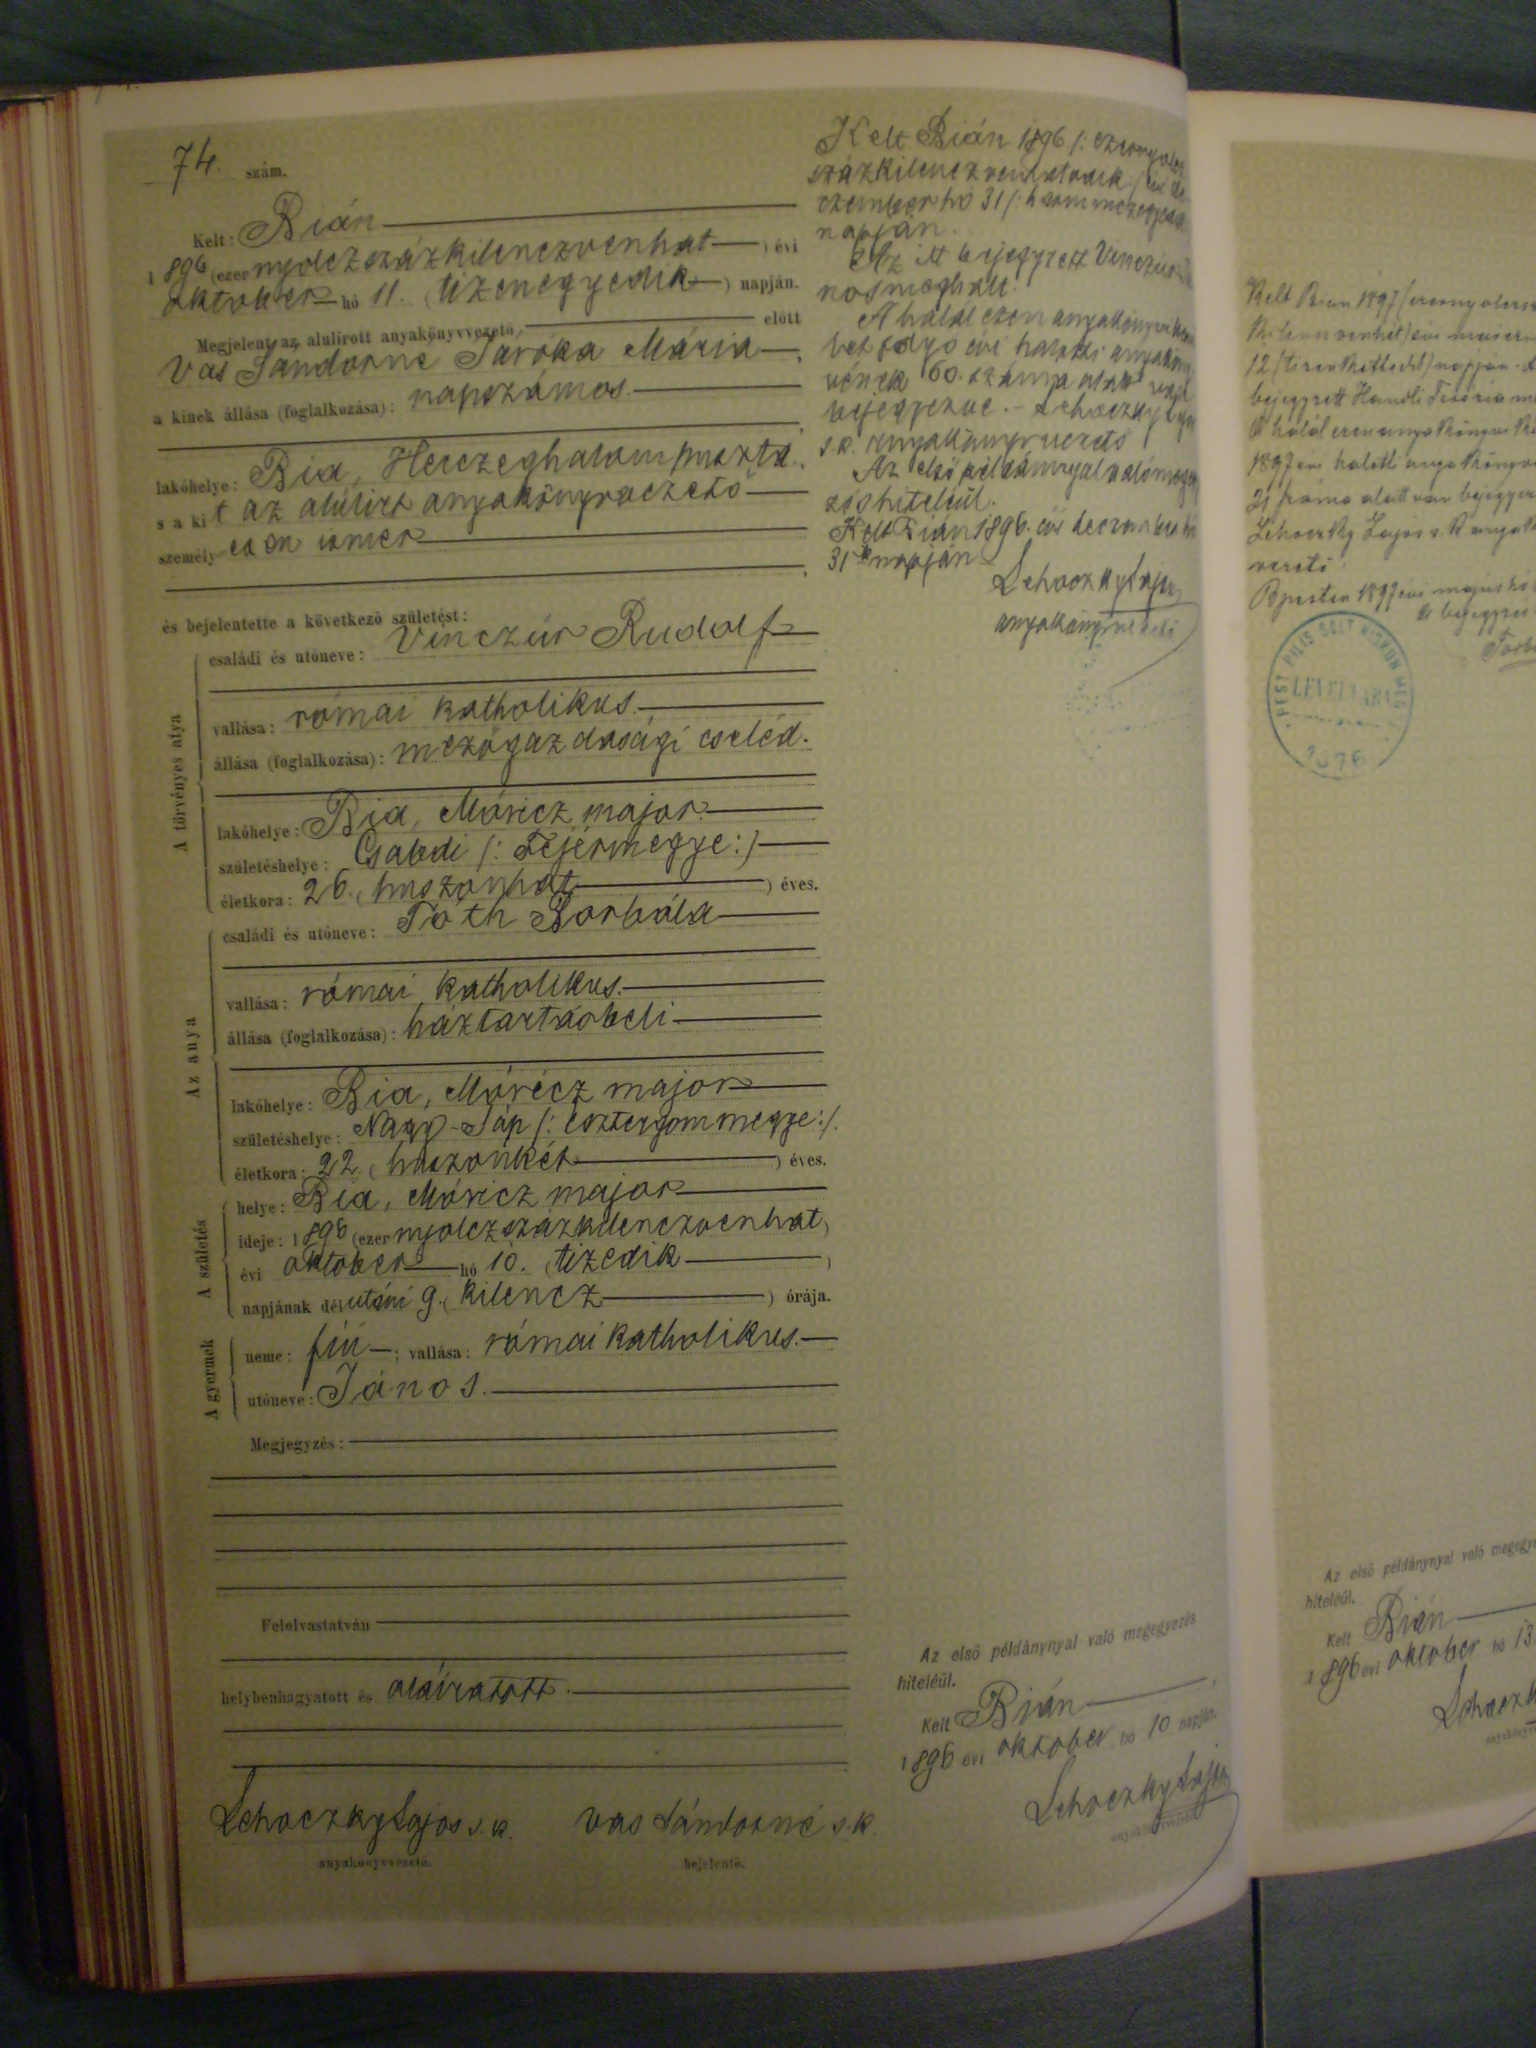 74. szám.
Kelt: Bián
1896 (ezer nyolczszázkilenczvenhat ) évi
oktober hó 11. (tizenegyedik ) napján.
Megjelent az alulirott anyakönyvvezető előtt
Vas Sándorné Mária
a kinek állása (foglalkozása): napszámos.
lakóhelye: Bia, Herczeghalom puszta,
s a kit az alúlirt anyakönyvvezető
személyesen ismer
és bejelentette a következő születést:
A törvényes atya
családi és utóneve: Vinczúr Rudolf
vallása: római katholikus.
állása (foglalkozása): mezőgazdasági cseléd.
lakóhelye: Bia, Móricz major.
születéshelye: Csabdi /: Fejérmegye:/
életkora: 26. (huszonhat ) éves.
Az anya
családi és utóneve: Tóth Borbála
vallása: római katholikus.
állása (foglalkozása): háztartásbeli
lakóhelye: Bia, Móricz major
születéshelye: Nagy-Sáp /: esztergommegye:/.
életkora: 22. (huszonkét ) éves.
A születés
helye: Bia, Móricz major
ideje: 1896 (ezer nyolczszázkilenczvenhat)
évi oktober hó 10. (tizedik )
napjának délutáni 9. (kilencz ) órája.
A gyermek
neme: fiú ; vallása: római katholikus.
utóneve: János.
Megjegyzés:
Felolvastatván
helybenhagyatott és aláiratott.
Lehoczky Lajos s. k. Vas Sándorné s. k.
anyakönyvvezető. bejelentő.
Kelt Bián 1896 /: ezernyolcz
százkilenczvenhatodik:/ évi de
czember hó 31 /: harminczegyedik
napján.
Az itt bejegyzett Vinczúr
nos meghalt.
A halál ezen anyakönyvi
folyó évi halotti
60. száma alatt
bejegyezve. - Lehoczky Lajos
s. k. anyakönyvvezető
Az első példánynyal való
zés hiteléül.
Kelt Bián 1896. évi deczember hó
31 napján
Lehoczky Lajos
anyakönyvvezető
Az első példánynyal való megegyezés
hiteléül.
Kelt Bián
1896 évi oktober hó 10 napján.
Lehoczky Lajos
anyakönyvvezető.
Kelt Bián 1897
kilenczvenhét) évi
12 (tizenkettedik) napján.
bejegyzett Handli Terézia
A halál ezen anyakönyvi
1897 évi halotti anyakönyv
21 száma alatt van
Lehoczky Lajos s. k.
vezető.
Bpesten 1897 évi május hó
PEST PILIS SOLT KISKUN MEG
LEVÉLTÁRA
Az első példánynyal való
hiteléül.
Kelt Bián
1896 évi oktober hó 13